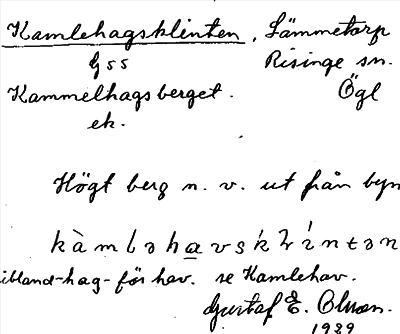 Kamlehagsklinten, Lämmetorp
Gss Risinge sn.
Kammelhagsberget. Ögl
ek.
Högt berg n. v. ut från byn
kàmləhavsklíntən
ibland -hag- för hav. se Kamlehav.
Gustaf E. Olsson.
1939